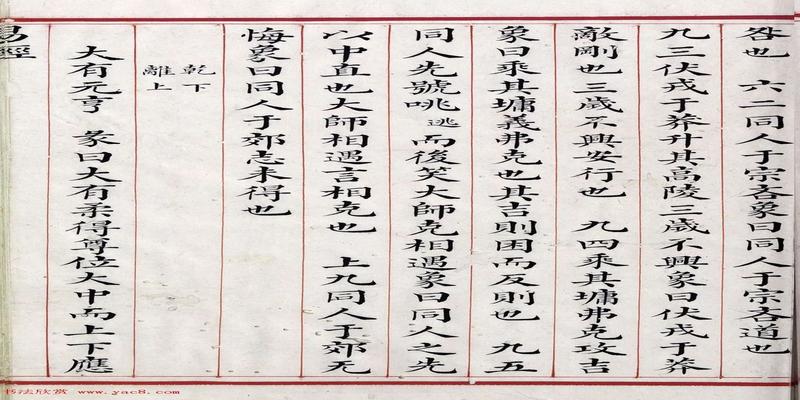 咎也 六二同人于宗吝象曰同人于宗吝道也
九三伏戎于莽升其高陵三歲不興象曰伏戎于莽
敵剛也三歲不興安行也 九四乘其墉弗克攻吉
象曰乘其墉義弗克也其吉則困而反則也 九五
同人先號咷逃而後笑大師克相遇象曰同人之先
以中直也大師相遇言相克也 上九同人于郊无
悔象曰同人于郊志未得也
乾下
離上
大有元亨 彖曰大有柔得尊位大中而上下應
易經
书法欣赏 www.yac8.com